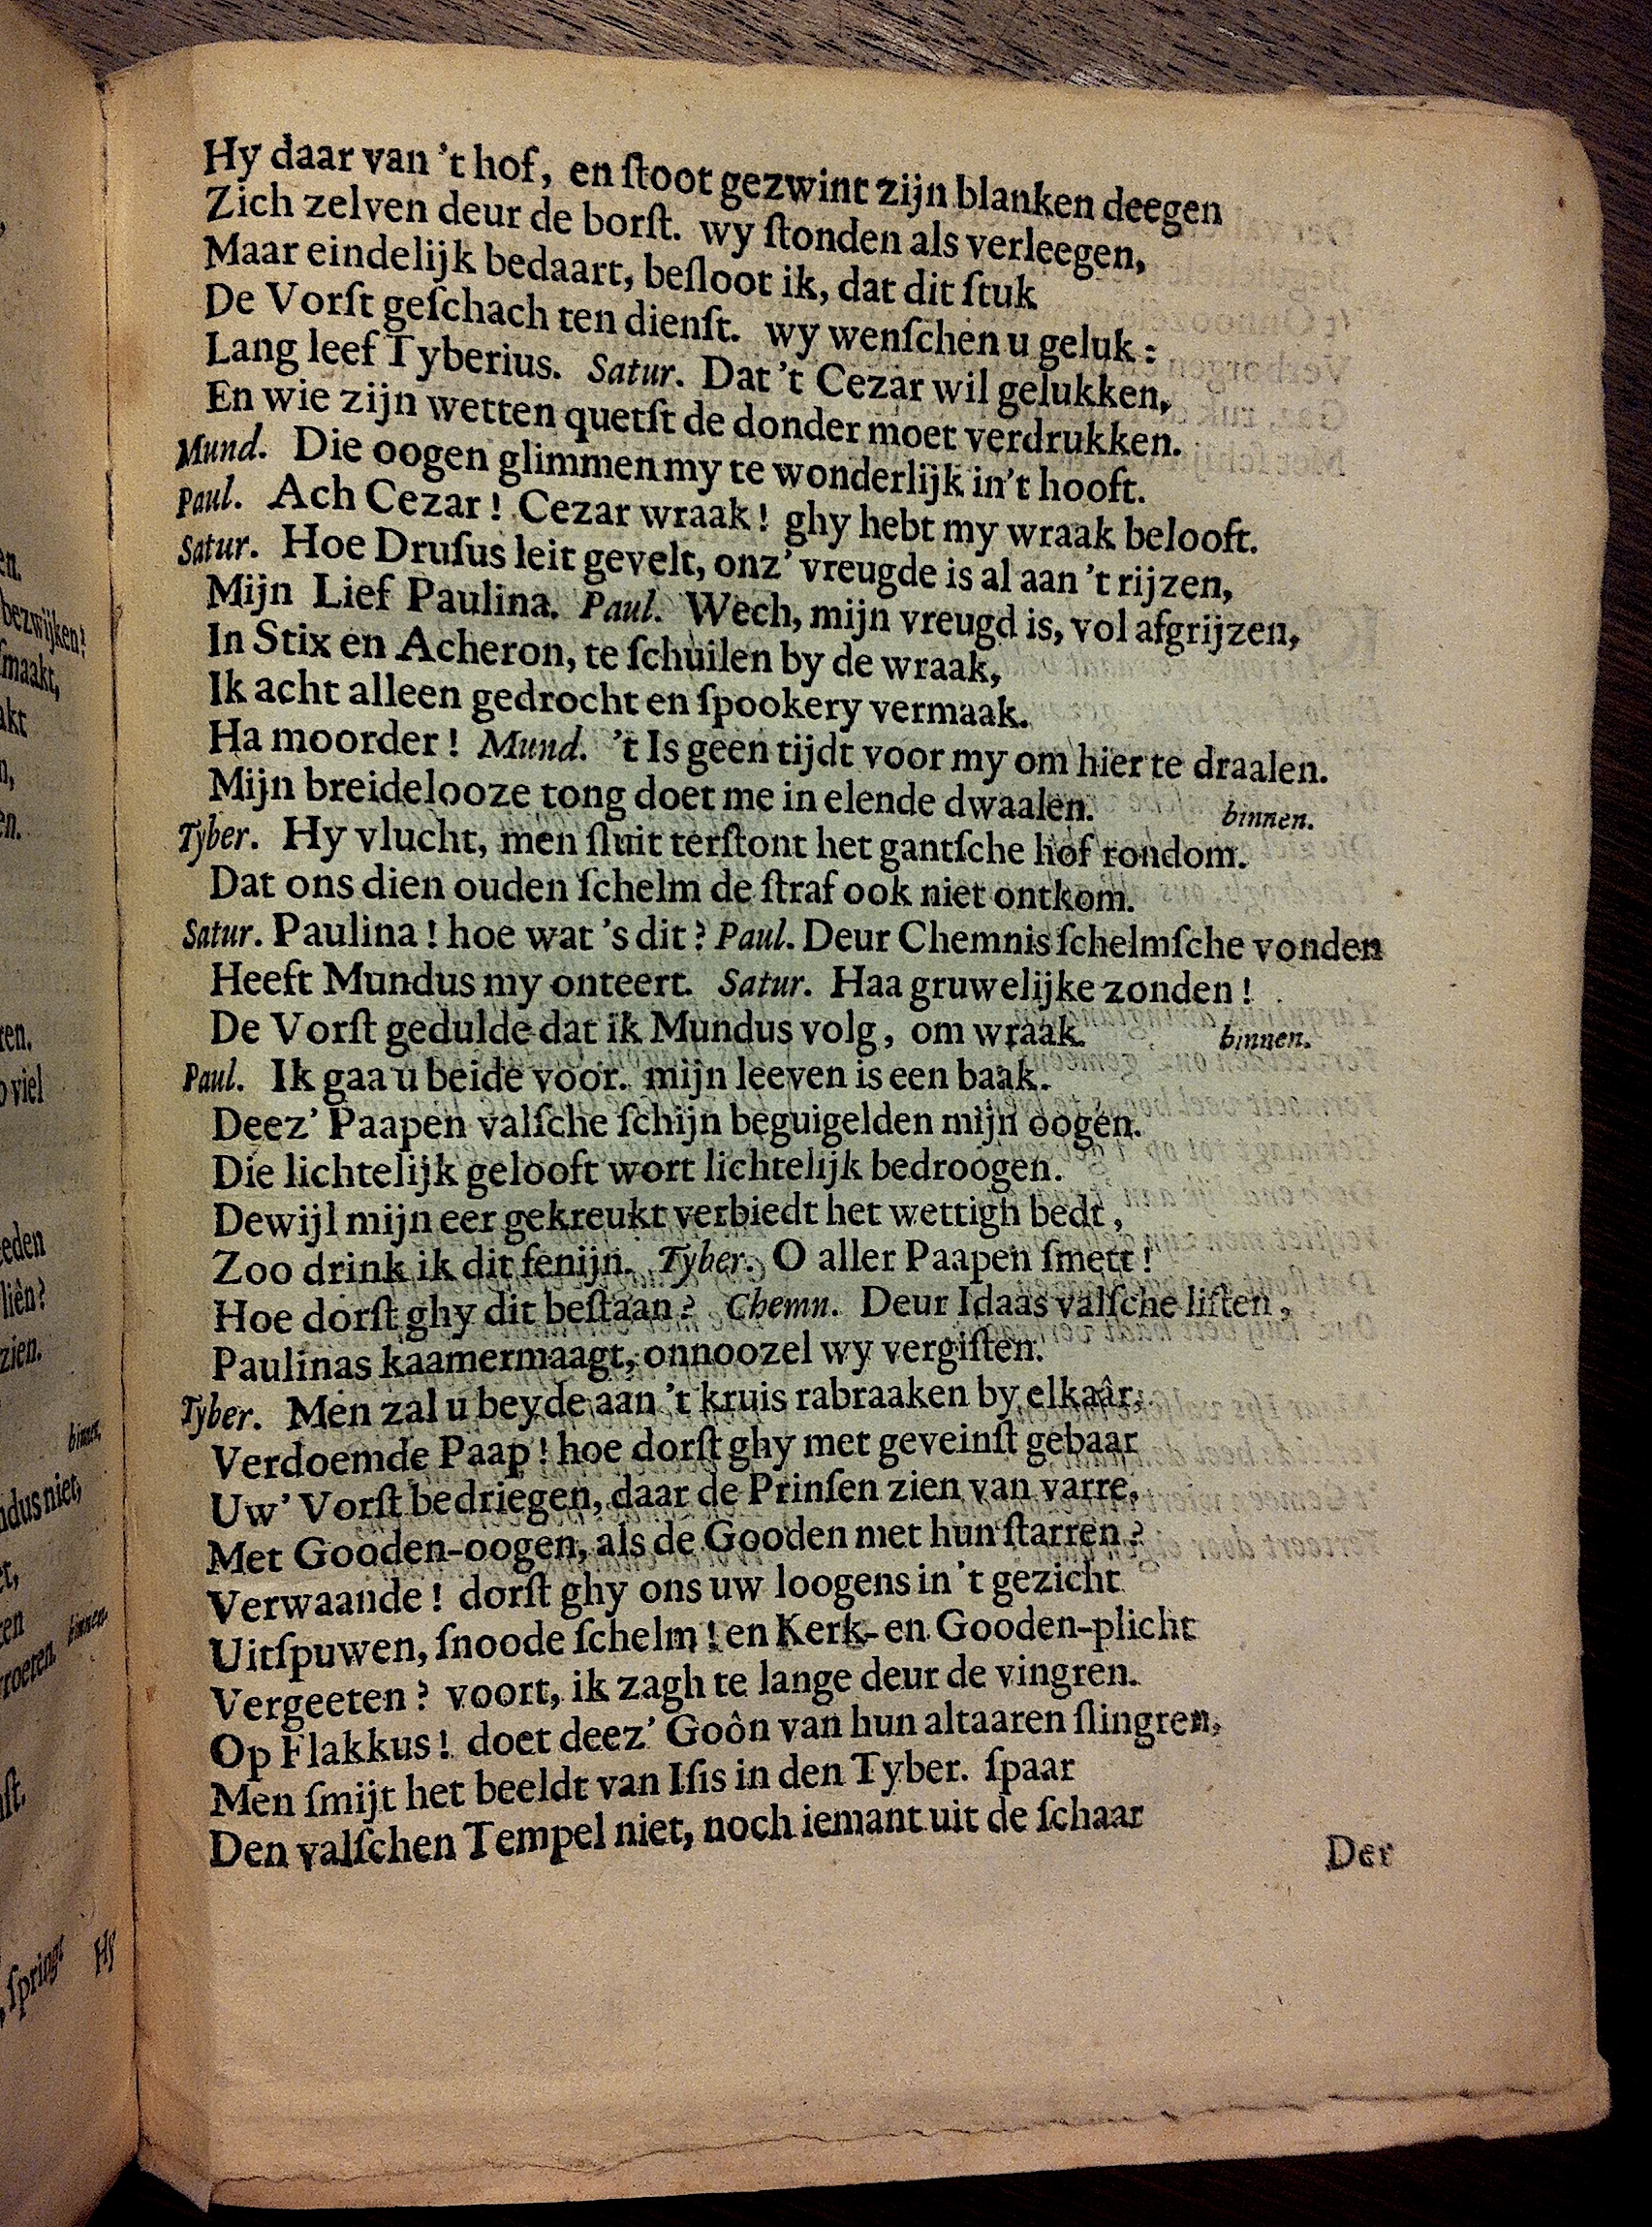 Hy daar van 't hof, en ſtoot gezwint zijn blanken deegen
Zich zelven deur de borſt. wy ſtonden als verleegen,
Maar eindelijk bedaart, beſloot ik, dat dit ſtuk
De Vorſt geſchach ten dienſt. wy wenſchen u geluk:
Lang leef Tyberius. Satur. Dat 't Cezar wil gelukken,
En wie zijn wetten quetſt de donder moet verdrukken.
Mund. Die oogen glimmen my te wonderlijk in't hooft.
Paul. Ach Cezar! Cezar wraak! ghy hebt my wraak belooft.
Satur. Hoe Druſus leit gevelt, onz' vreugde is al aan 't rijzen,
Mijn Lief Paulina. Paul. Wech, mijn vreugd is, vol afgrijzen,
In Stix en Acheron, te ſchuilen by de wraak,
Ik acht alleen gedrocht en ſpookery vermaak.
Ha moorder! Mund. 't Is geen tijdt voor my om hier te draalen.
Mijn breidelooze tong doet me in elende dwaalen. binnen.
Tyber. Hy vlucht, men ſluit terſtont het gantſche hof rondom.
Dat ons dien ouden ſchelm de ſtraf ook niet ontkom.
Satur. Paulina! hoe wat 's dit? Paul. Deur Chemnis ſchelmſche vonden
Heeft Mundus my onteert. Satur. Haa gruwelijke zonden!
De Vorſt gedulde dat ik Mundus volg, om wraak. binnen.
Paul. Ik gaa u beide voor. mijn leeven is een baak.
Deez' Paapen valſche ſchijn beguigelden mijn oogen.
Die lichtelijk gelooft wort lichtelijk bedroogen.
Dewijl mijn eer gekreukt verbiedt het wettigh bedt,
Zoo drink ik dit fenijn. Tyber. O aller Paapen ſmett!
Hoe dorſt ghy dit beſtaan? Chemn. Deur Idaas valſche liſten,
Paulinas kaamermaagt, onnoozel wy vergiſten.
Tyber. Men zal u beyde aan 't kruis rabraaken by elkaâr,
Verdoemde Paap! hoe dorſt ghy met geveinſt gebaar
Uw' Vorſt bedriegen, daar de Prinſen zien van varre,
Met Gooden-oogen, als de Gooden met hun ſtarren?
Verwaande! dorſt ghy ons uw loogens in 't gezicht
Uitſpuwen, ſnoode ſchelm! en Kerk- en Gooden-plicht
Vergeeten? voort, ik zagh te lange deur de vingren.
Op Flakkus! doet deez' Goôn van hun altaaren ſlingren,
Men ſmijt het beeldt van Iſis in den Tyber. ſpaar
Den valſchen Tempel niet, noch iemant uit de ſchaar
Der
bezwijken!
ſmaakt,
viel
liên?
zien.
binnen,
niet,
binnen.
ſpringt
Hy